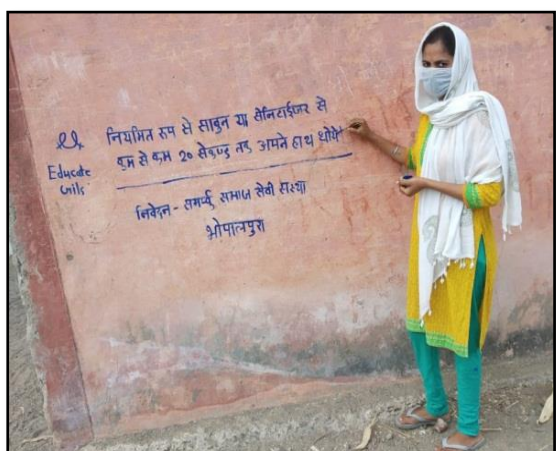 Educate
Girls
नियमित रूप से साबुन या सेनिटाईजर से
कम से कम 20 सेकण्ड तक अपने हाथ धोये
निवेदन - समर्थ समाज सेवी संस्था
भोपालपुरा